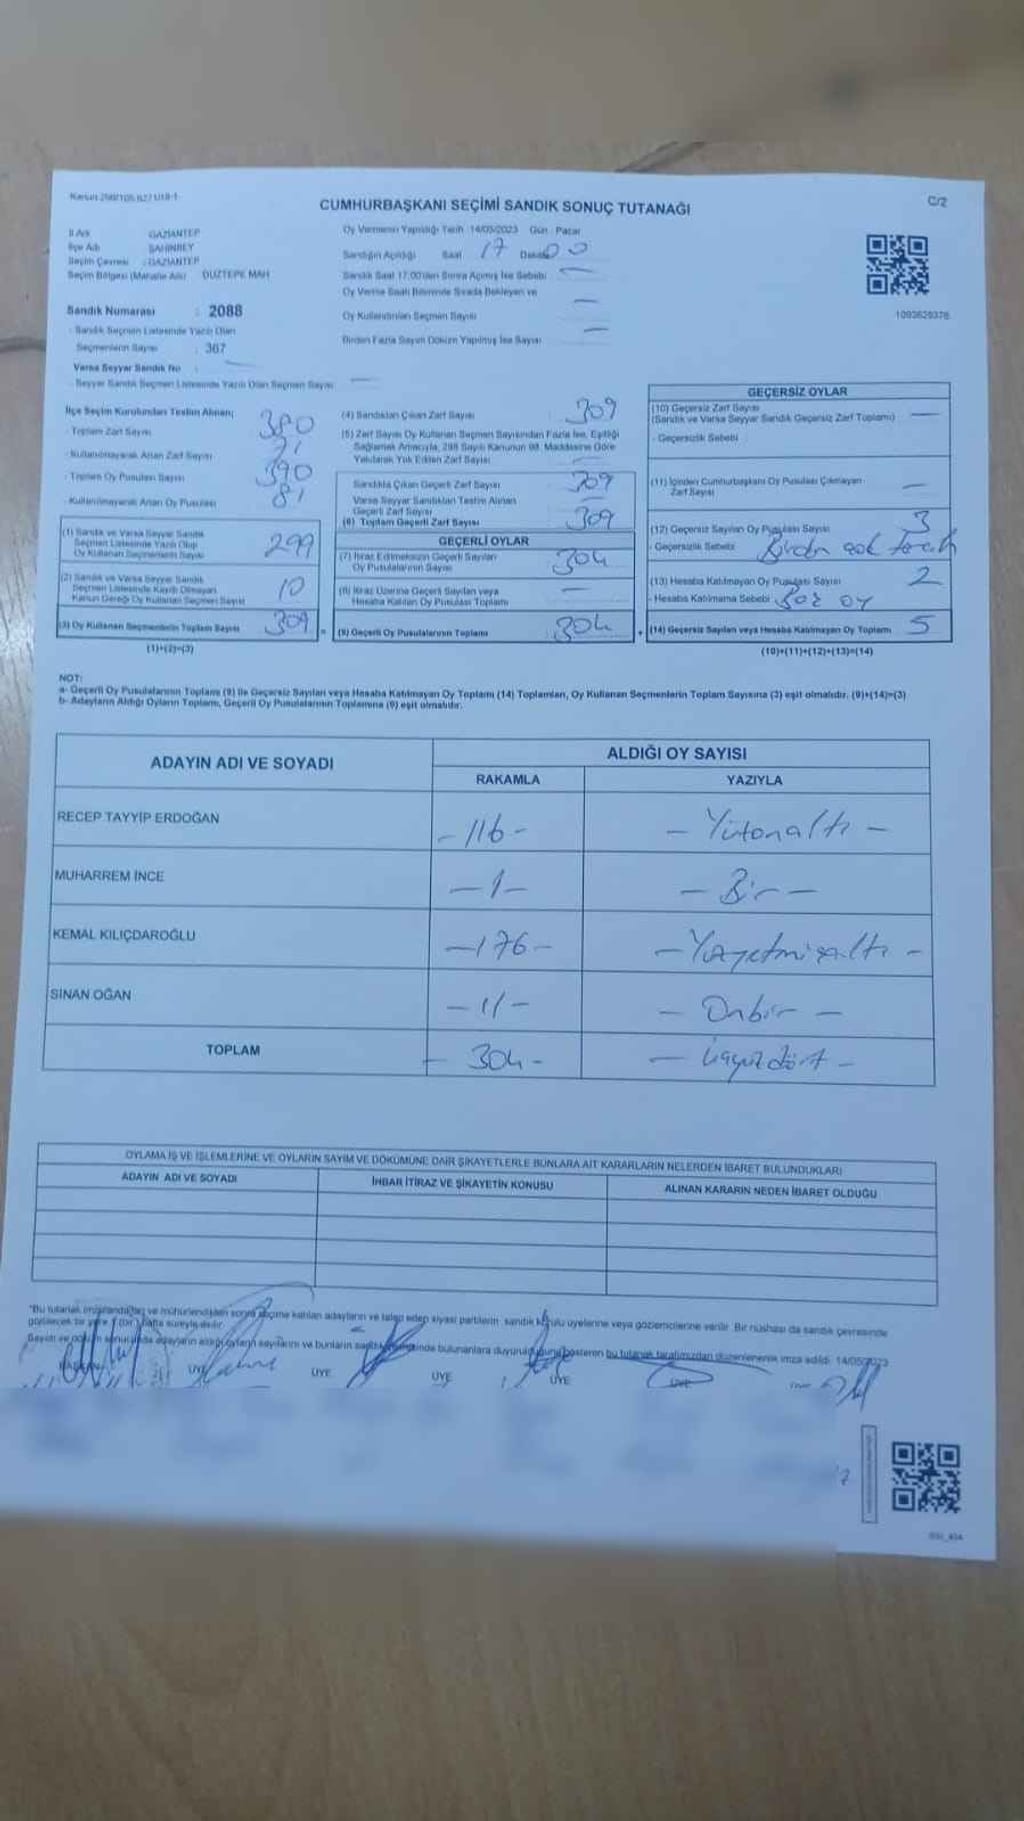 C/2
CUMHURBAŞKANI SEÇİMİ SANDIK SONUÇ TUTANAĞI
İl Adı GAZİANTEP
İlçe Adı ŞAHİNBEY
Seçim Çevresi : GAZİANTEP
Seçim Bölgesi (Mahalle Adı) DÜZTEPE MAH
Sandık Numarası : 2088
- Sandık Seçmen Listesinde Yazılı Olan
Seçmenlerin Sayısı : 367
Varsa Seyyar Sandık No :
- Seyyar Sandık Seçmen Listesinde Yazılı Olan Seçmen Sayısı
Oy Vermenin Yapıldığı Tarih 14/05/2023 Gün : Pazar
Sandığın Açıldığı Saat 17 Dakika 00
Sandık Saat 17:00'den Sonra Açılmış İse Sebebi
Oy Verme Saati Bitiminde Sırada Bekleyen ve
Oy Kullandırılan Seçmen Sayısı
Birden Fazla Sayım Döküm Yapılmış İse Sayısı
1093629378
İlçe Seçim Kurulundan Teslim Alınan;
- Toplam Zarf Sayısı 380
- Kullanılmayarak Artan Zarf Sayısı 71
- Toplam Oy Pusulası Sayısı 390
- Kullanılmayarak Artan Oy Pusulası 81
(1) Sandık ve Varsa Seyyar Sandık
Seçmen Listesinde Yazılı Olup
Oy Kullanan Seçmenlerin Sayısı 299
(2) Sandık ve Varsa Seyyar Sandık
Seçmen Listesinde Kayıtlı Olmayan
Kanun Gereği Oy Kullanan Seçmen Sayısı 10
(3) Oy Kullanan Seçmenlerin Toplam Sayısı 309 =
(1)+(2)=(3)
(4) Sandıktan Çıkan Zarf Sayısı 309
(5) Zarf Sayısı Oy Kullanan Seçmen Sayısından Fazla İse, Eşitliği
Sağlamak Amacıyla, 298 Sayılı Kanunun 98. Maddesine Göre
Yakılarak Yok Edilen Zarf Sayısı
Sandıkta Çıkan Geçerli Zarf Sayısı 309
Varsa Seyyar Sandıktan Teslim Alınan
Geçerli Zarf Sayısı
(6) Toplam Geçerli Zarf Sayısı 309
GEÇERLİ OYLAR
(7) İtiraz Edilmeksizin Geçerli Sayılan
Oy Pusulalarının Sayısı 304
(8) İtiraz Üzerine Geçerli Sayılan veya
Hesaba Katılan Oy Pusulası Toplamı
(9) Geçerli Oy Pusulalarının Toplamı 304 +
GEÇERSİZ OYLAR
(10) Geçersiz Zarf Sayısı
(Sandık ve Varsa Seyyar Sandık Geçersiz Zarf Toplamı)
- Geçersizlik Sebebi
(11) İçinden Cumhurbaşkanı Oy Pusulası Çıkmayan
Zarf Sayısı
(12) Geçersiz Sayılan Oy Pusulası Sayısı 3
- Geçersizlik Sebebi Birden çok tercih
(13) Hesaba Katılmayan Oy Pusulası Sayısı 2
- Hesaba Katılmama Sebebi Boz oy
(14) Geçersiz Sayılan veya Hesaba Katılmayan Oy Toplamı 5
(10)+(11)+(12)+(13)=(14)
NOT:
a- Geçerli Oy Pusulalarının Toplamı (9) ile Geçersiz Sayılan veya Hesaba Katılmayan Oy Toplamı (14) Toplamları, Oy Kullanan Seçmenlerin Toplam Sayısına (3) eşit olmalıdır. (9)+(14)=(3)
b- Adayların Aldığı Oyların Toplamı, Geçerli Oy Pusulalarının Toplamına (9) eşit olmalıdır.
ADAYIN ADI VE SOYADI
ALDIĞI OY SAYISI
RAKAMLA YAZIYLA
RECEP TAYYİP ERDOĞAN -116- - Yüzonaltı -
MUHARREM İNCE -1- - Bir -
KEMAL KILIÇDAROĞLU -176- - Yüzyetmişaltı -
SİNAN OĞAN -11- - Onbir -
TOPLAM - 304 - - Üçyüzdört -
OYLAMA İŞ VE İŞLEMLERİNE VE OYLARIN SAYIM VE DÖKÜMÜNE DAİR ŞİKAYETLERLE BUNLARA AİT KARARLARIN NELERDEN İBARET BULUNDUKLARI
ADAYIN ADI VE SOYADI İHBAR İTİRAZ VE ŞİKAYETİN KONUSU ALINAN KARARIN NEDEN İBARET OLDUĞU
"Bu tutanak imzalandıktan ve mühürlendikten sonra seçime katılan adayların ve talep eden siyasi partilerin sandık kurulu üyelerine veya gözlemcilerine verilir. Bir nüshası da sandık çevresinde
görülecek bir yere 1 (bir) hafta süreyle asılır.
adayların aldığı oyların sayılarını ve bunların bulunanlara duyurulduğunu gösteren bu tutanak tarafımızdan düzenlenerek imza edildi. 14/05/2023
BAŞKAN ÜYE ÜYE ÜYE ÜYE ÜYE